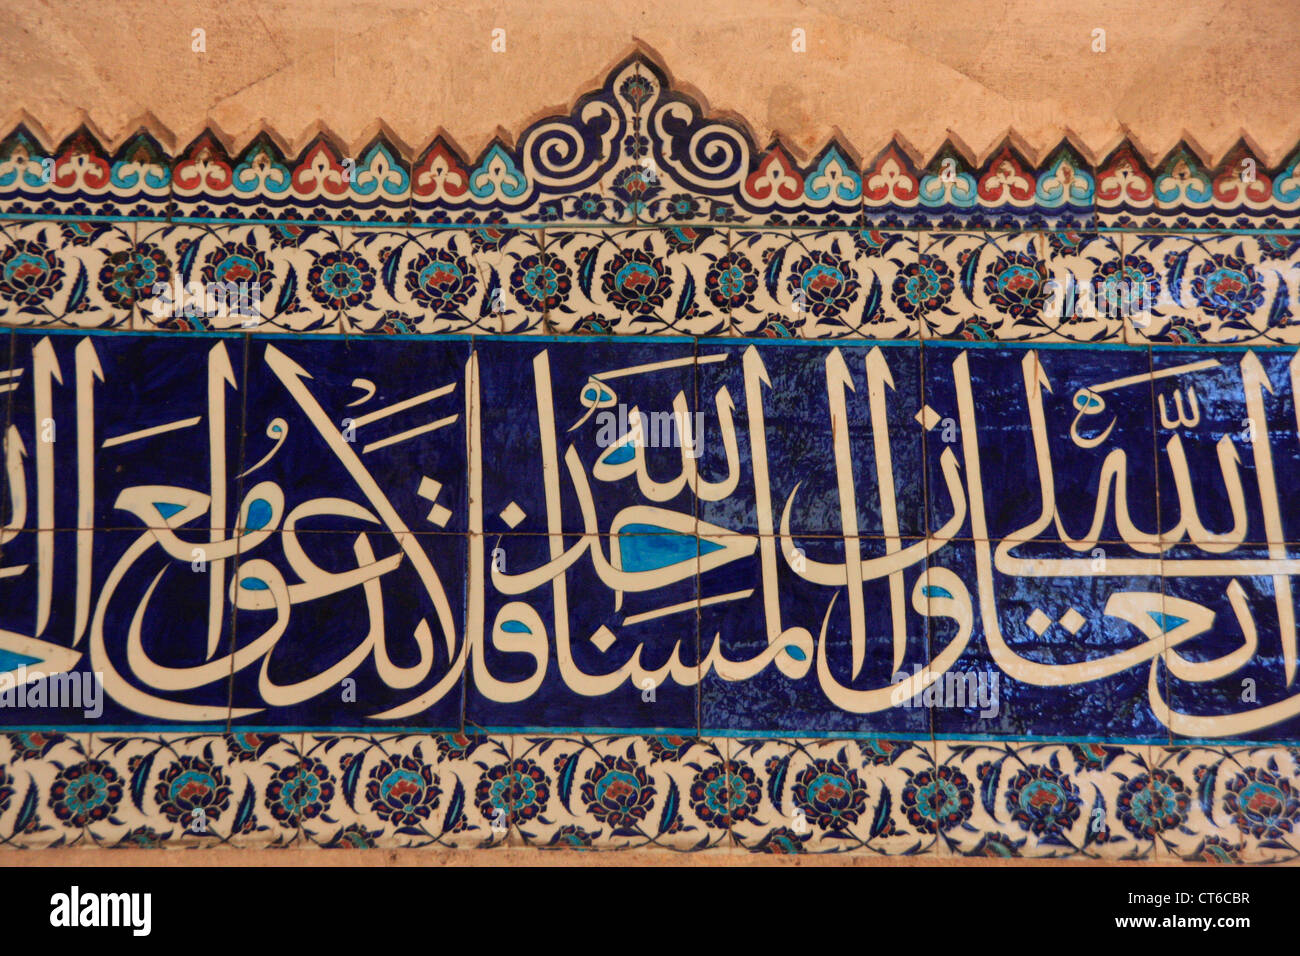 الله تعالى وان المساجد لله فلا تدعوا مع
a a a a
alamy
a a a a
alamy
a a a a
alamy
Image ID: CT6CBR
www.alamy.com